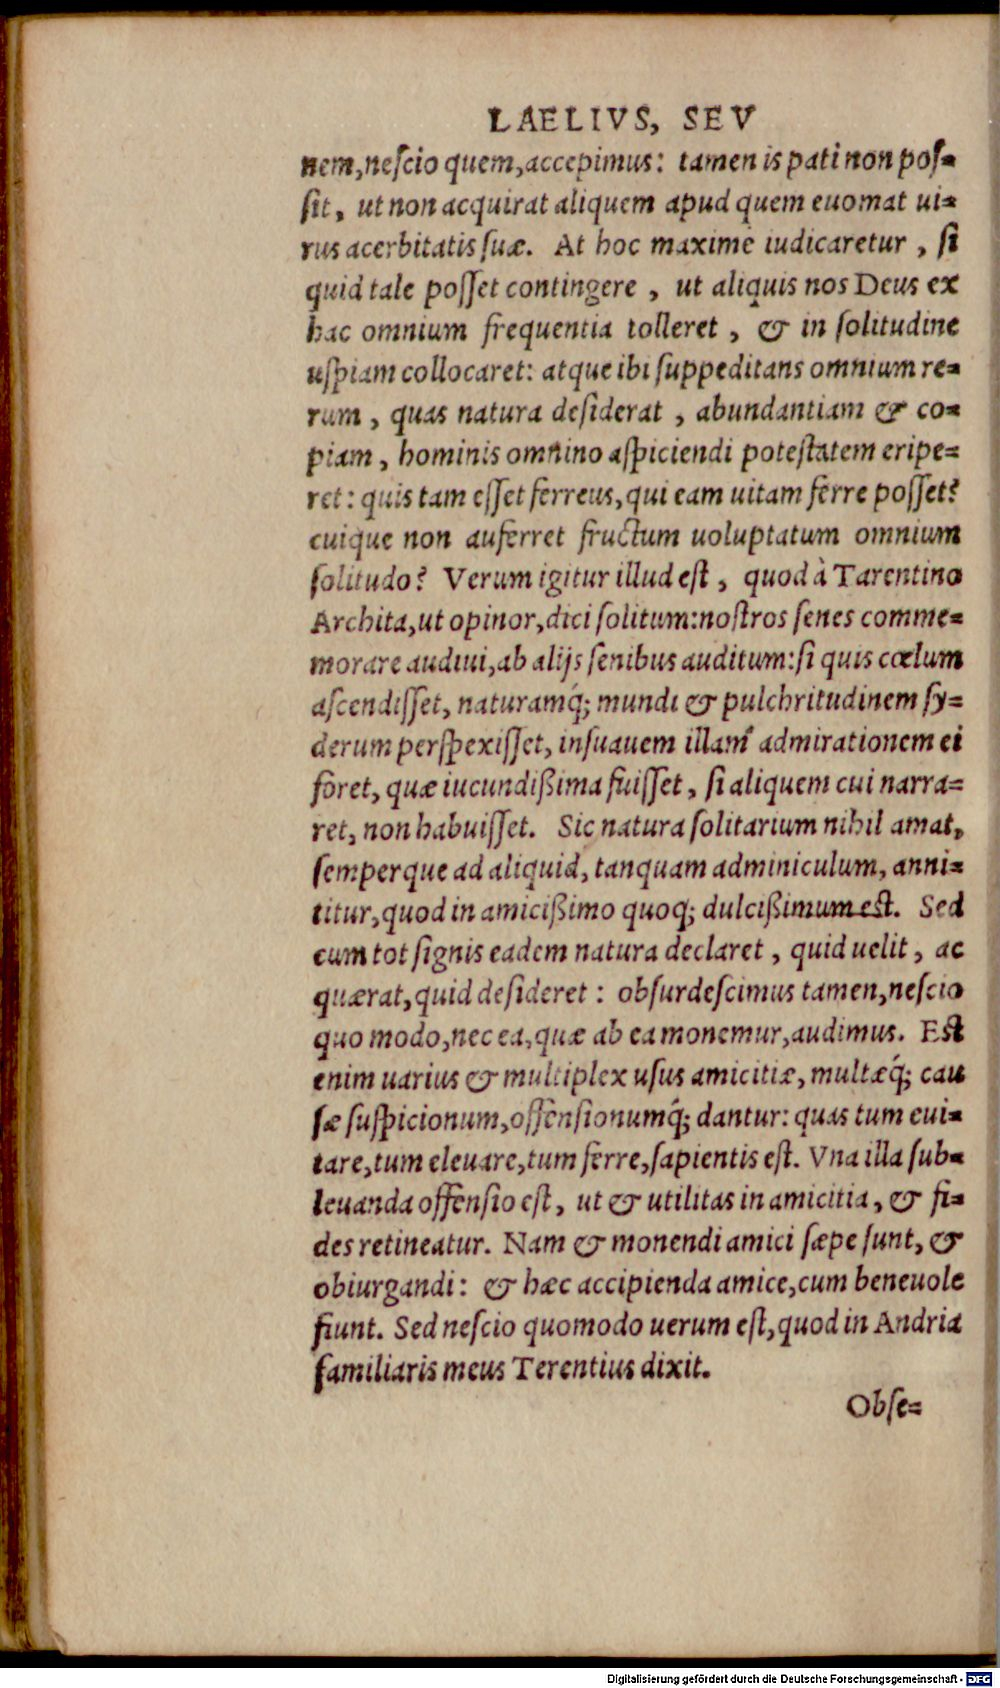 LAELIVS, SEV
nem, neſcio quem, accepimus: tamen is pati non poſ=
ſit, ut non acquirat aliquem apud quem euomat ui=
rus acerbitatis ſuæ. At hoc maximè iudicaretur, ſi
quid tale poſſet contingere, ut aliquis nos Deus ex
hac omnium frequentia tolleret, & in ſolitudine
uſpiam collocaret: atque ibi ſuppeditans omnium re=
rum, quas natura deſiderat, abundantiam & co=
piam, hominis omnino aſpiciendi poteſtatem eripe=
ret: quis tam eſſet ferreus, qui eam uitam ferre poſſet?
cuique non auferret fructum uoluptatum omnium
ſolitudo? Verum igitur illud eſt, quod à Tarentino
Archita, ut opinor, dici ſolitum: noſtros ſenes comme=
morare audiui, ab alijs ſenibus auditum: ſi quis cœlum
aſcendiſſet, naturamq́; mundi & pulchritudinem ſy=
derum perſpexiſſet, inſuauem illam admirationem ei
foret, quæ iucundißima fuiſſet, ſi aliquem cui narra=
ret, non habuiſſet. Sic natura ſolitarium nihil amat,
ſemperque ad aliquid, tanquam adminiculum, anni=
titur, quod in amicißimo quoq; dulcißimum eſt. Sed
cum tot ſignis eadem natura declaret, quid uelit, ac
quærat, quid deſideret: obſurdeſcimus tamen, neſcio
quo modo, nec ea, quæ ab ea monemur, audimus. Eſt
enim uarius & multiplex uſus amicitiæ, multæq́; cau
ſæ ſuſpicionum, offenſionumq́; dantur: quas tum eui=
tare, tum eleuare, tum ferre, ſapientis eſt. Vna illa ſub=
leuanda offenſio eſt, ut & utilitas in amicitia, & fi=
des retineatur. Nam & monendi amici ſæpe ſunt, &
obiurgandi: & hæc accipienda amice, cum beneuole
fiunt. Sed neſcio quomodo uerum eſt, quod in Andria
familiaris meus Terentius dixit.
Obſe=
Digitalisierung gefördert durch die Deutsche Forschungsgemeinschaft - DFG